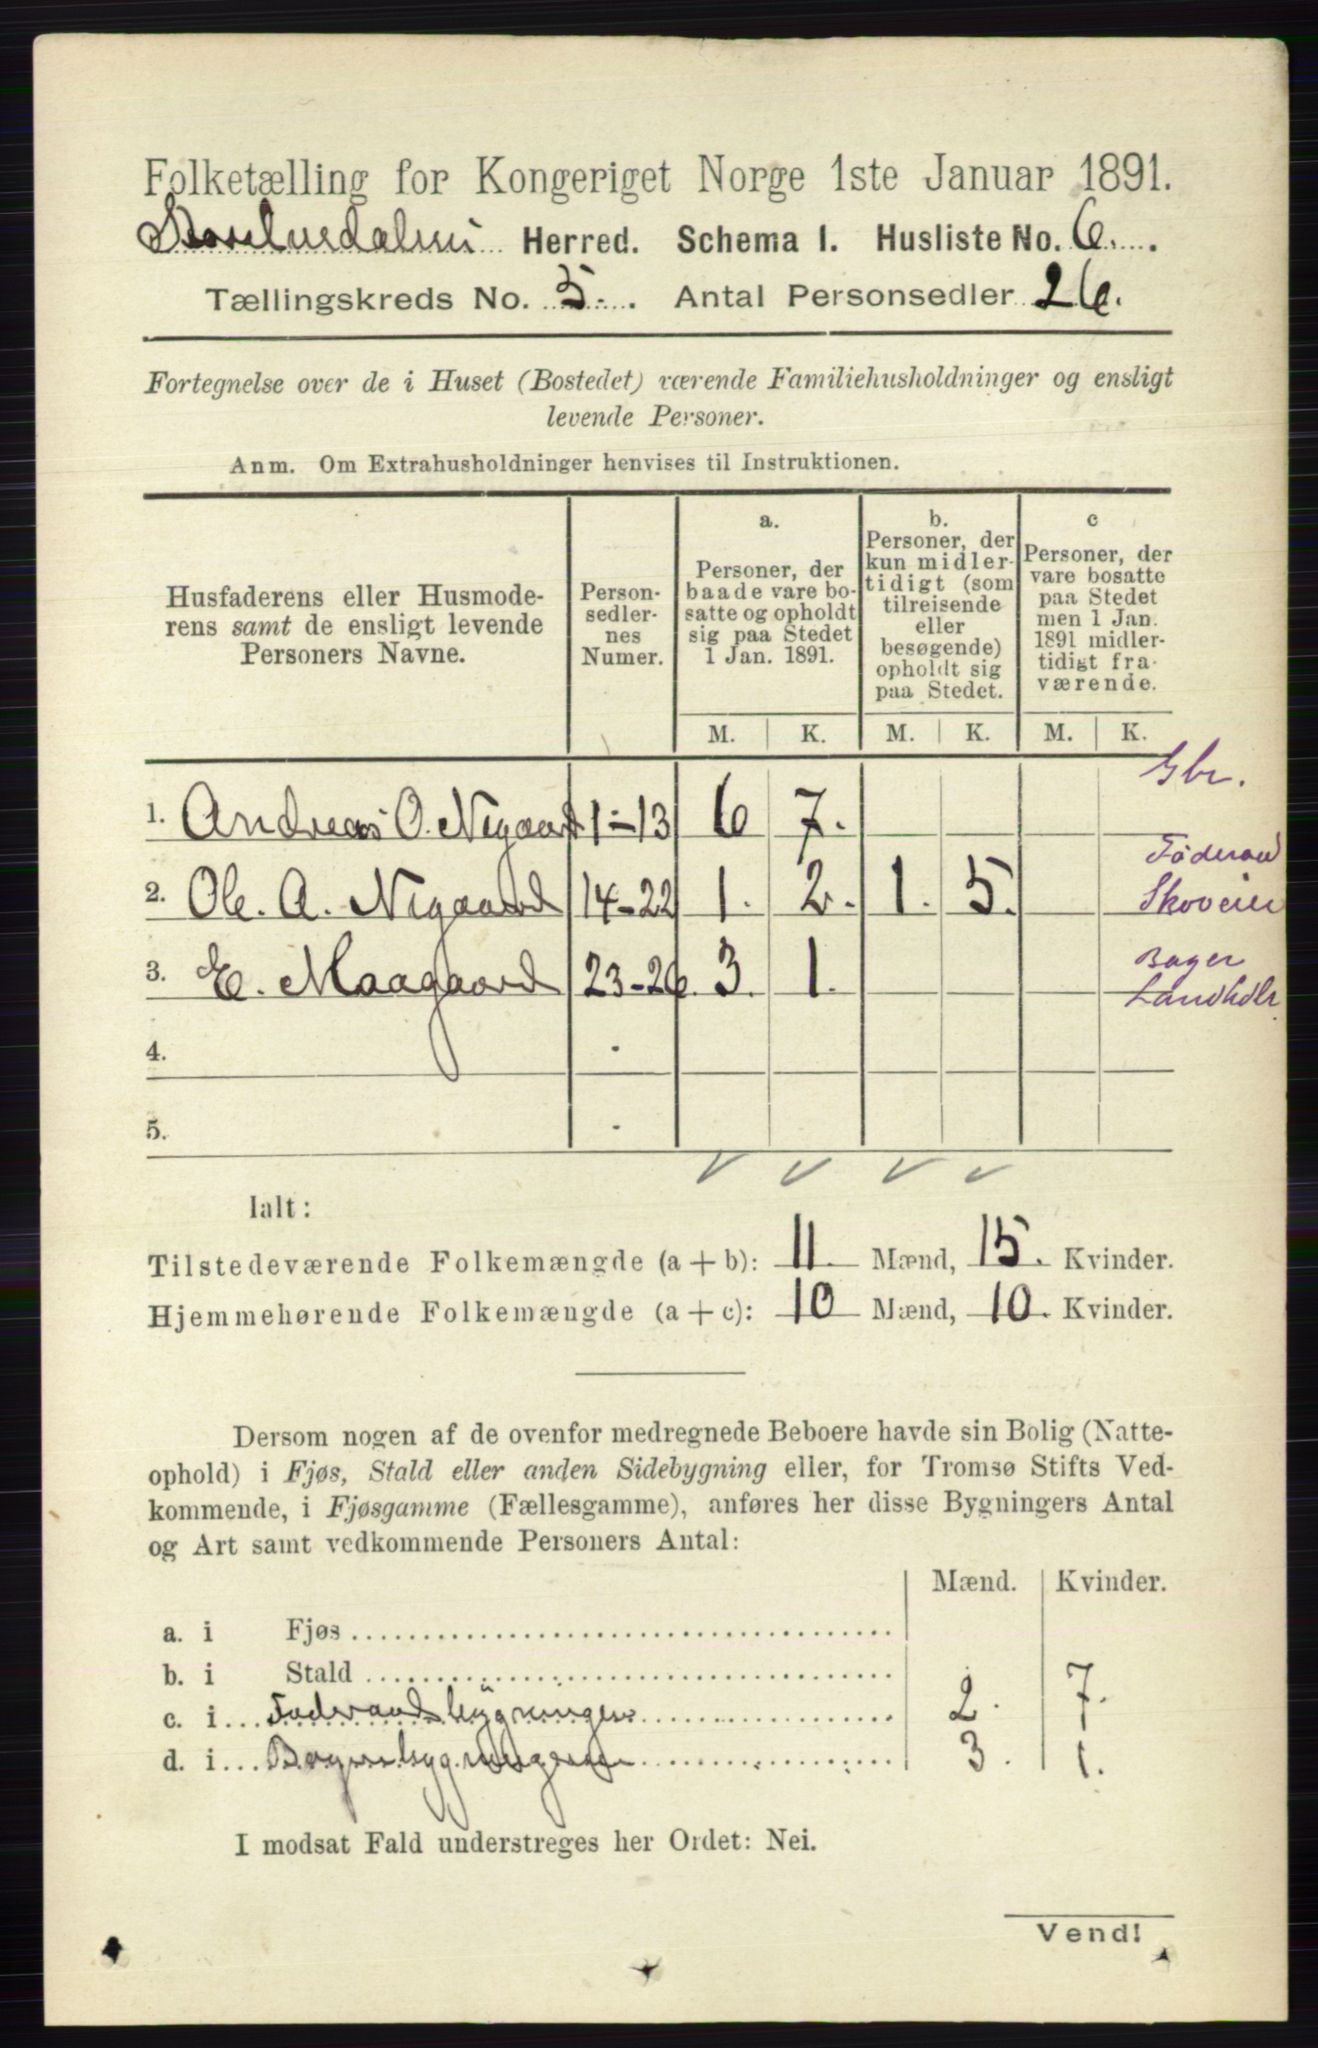 Folketælling for Kongeriget Norge 1ste Januar 1891.
Storelvedalens Herred. Schema I. Husliste No. 6.
Tællingskreds No. 5. Antal Personsedler 26.
Fortegnelse over de i Huset (Bostedet) værende Familiehusholdninger og ensligt
levende Personer.
Anm. Om Extrahusholdninger henvises til Instruktionen.
Husfaderens eller Husmode-
rens samt de ensligt levende
Personers Navne.
Person-
sedler-
nes
Numer.
a.
Personer, der
baade vare bo-
satte og opholdt
sig paa Stedet
1 Jan. 1891.
b.
Personer, der
kun midler-
tidigt (som
tilreisende
eller
besøgende)
opholdt sig
paa Stedet.
c
Personer, der
vare bosatte
paa Stedet
men 1 Jan.
1891 midler-
tidigt fra-
værende.
M. K. M. K. M. K.
Gbr.
1. Andreas O. Negaard 1-13 6 7.
Föderaad
2. Ole. A. Negaard 14-22 1. 2. 1. 5. Skoveier
Bager
3. E. Maagaard 23-26. 3. 1. Landhdlr.
4. -
5. -
Ialt:
Tilstedeværende Folkemængde (a + b): 11. Mænd, 15. Kvinder.
Hjemmehørende Folkemængde (a + c): 10 Mænd, 10. Kvinder.
Dersom nogen af de ovenfor medregnede Beboere havde sin Bolig (Natte-
ophold) i Fjøs, Stald eller anden Sidebygning eller, for Tromsø Stifts Ved-
kommende, i Fjøsgamme (Fællesgamme), anføres her disse Bygningers Antal
og Art samt vedkommende Personers Antal:
Mænd. Kvinder.
a. i Fjøs
b. i Stald
c. i Föderaadsbygningen 2. 7.
d. i Bagerbygningen 3. 1.
I modsat Fald understreges her Ordet: Nei.
Vend!